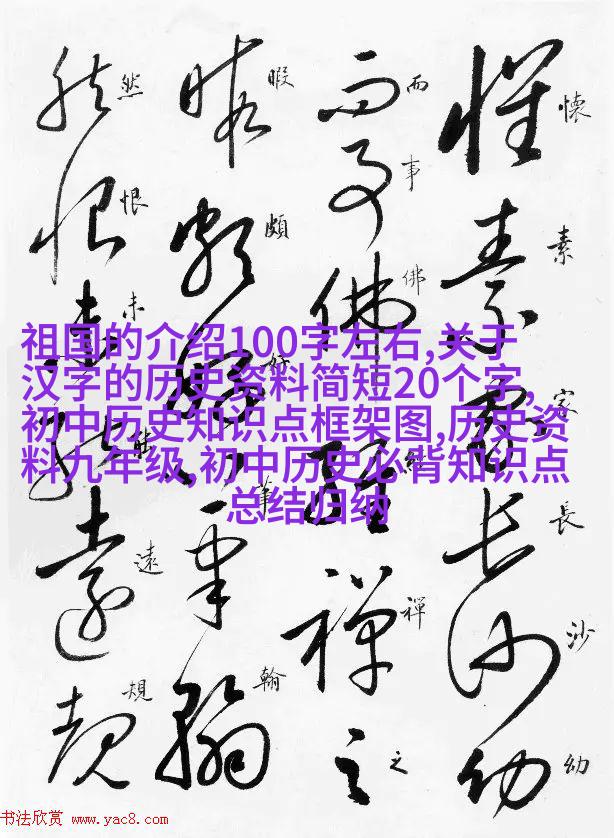 懷素家長沙幼
而事佛經禪之
暇頗好筆翰
然恨未能遠規
祖国的介绍100字左右,关于
汉字的历史资料简短20个字,
初中历史知识点框架图,历史资
料九年级,初中历史必背知识点
总结归纳
书法欣赏 www.yac8.com